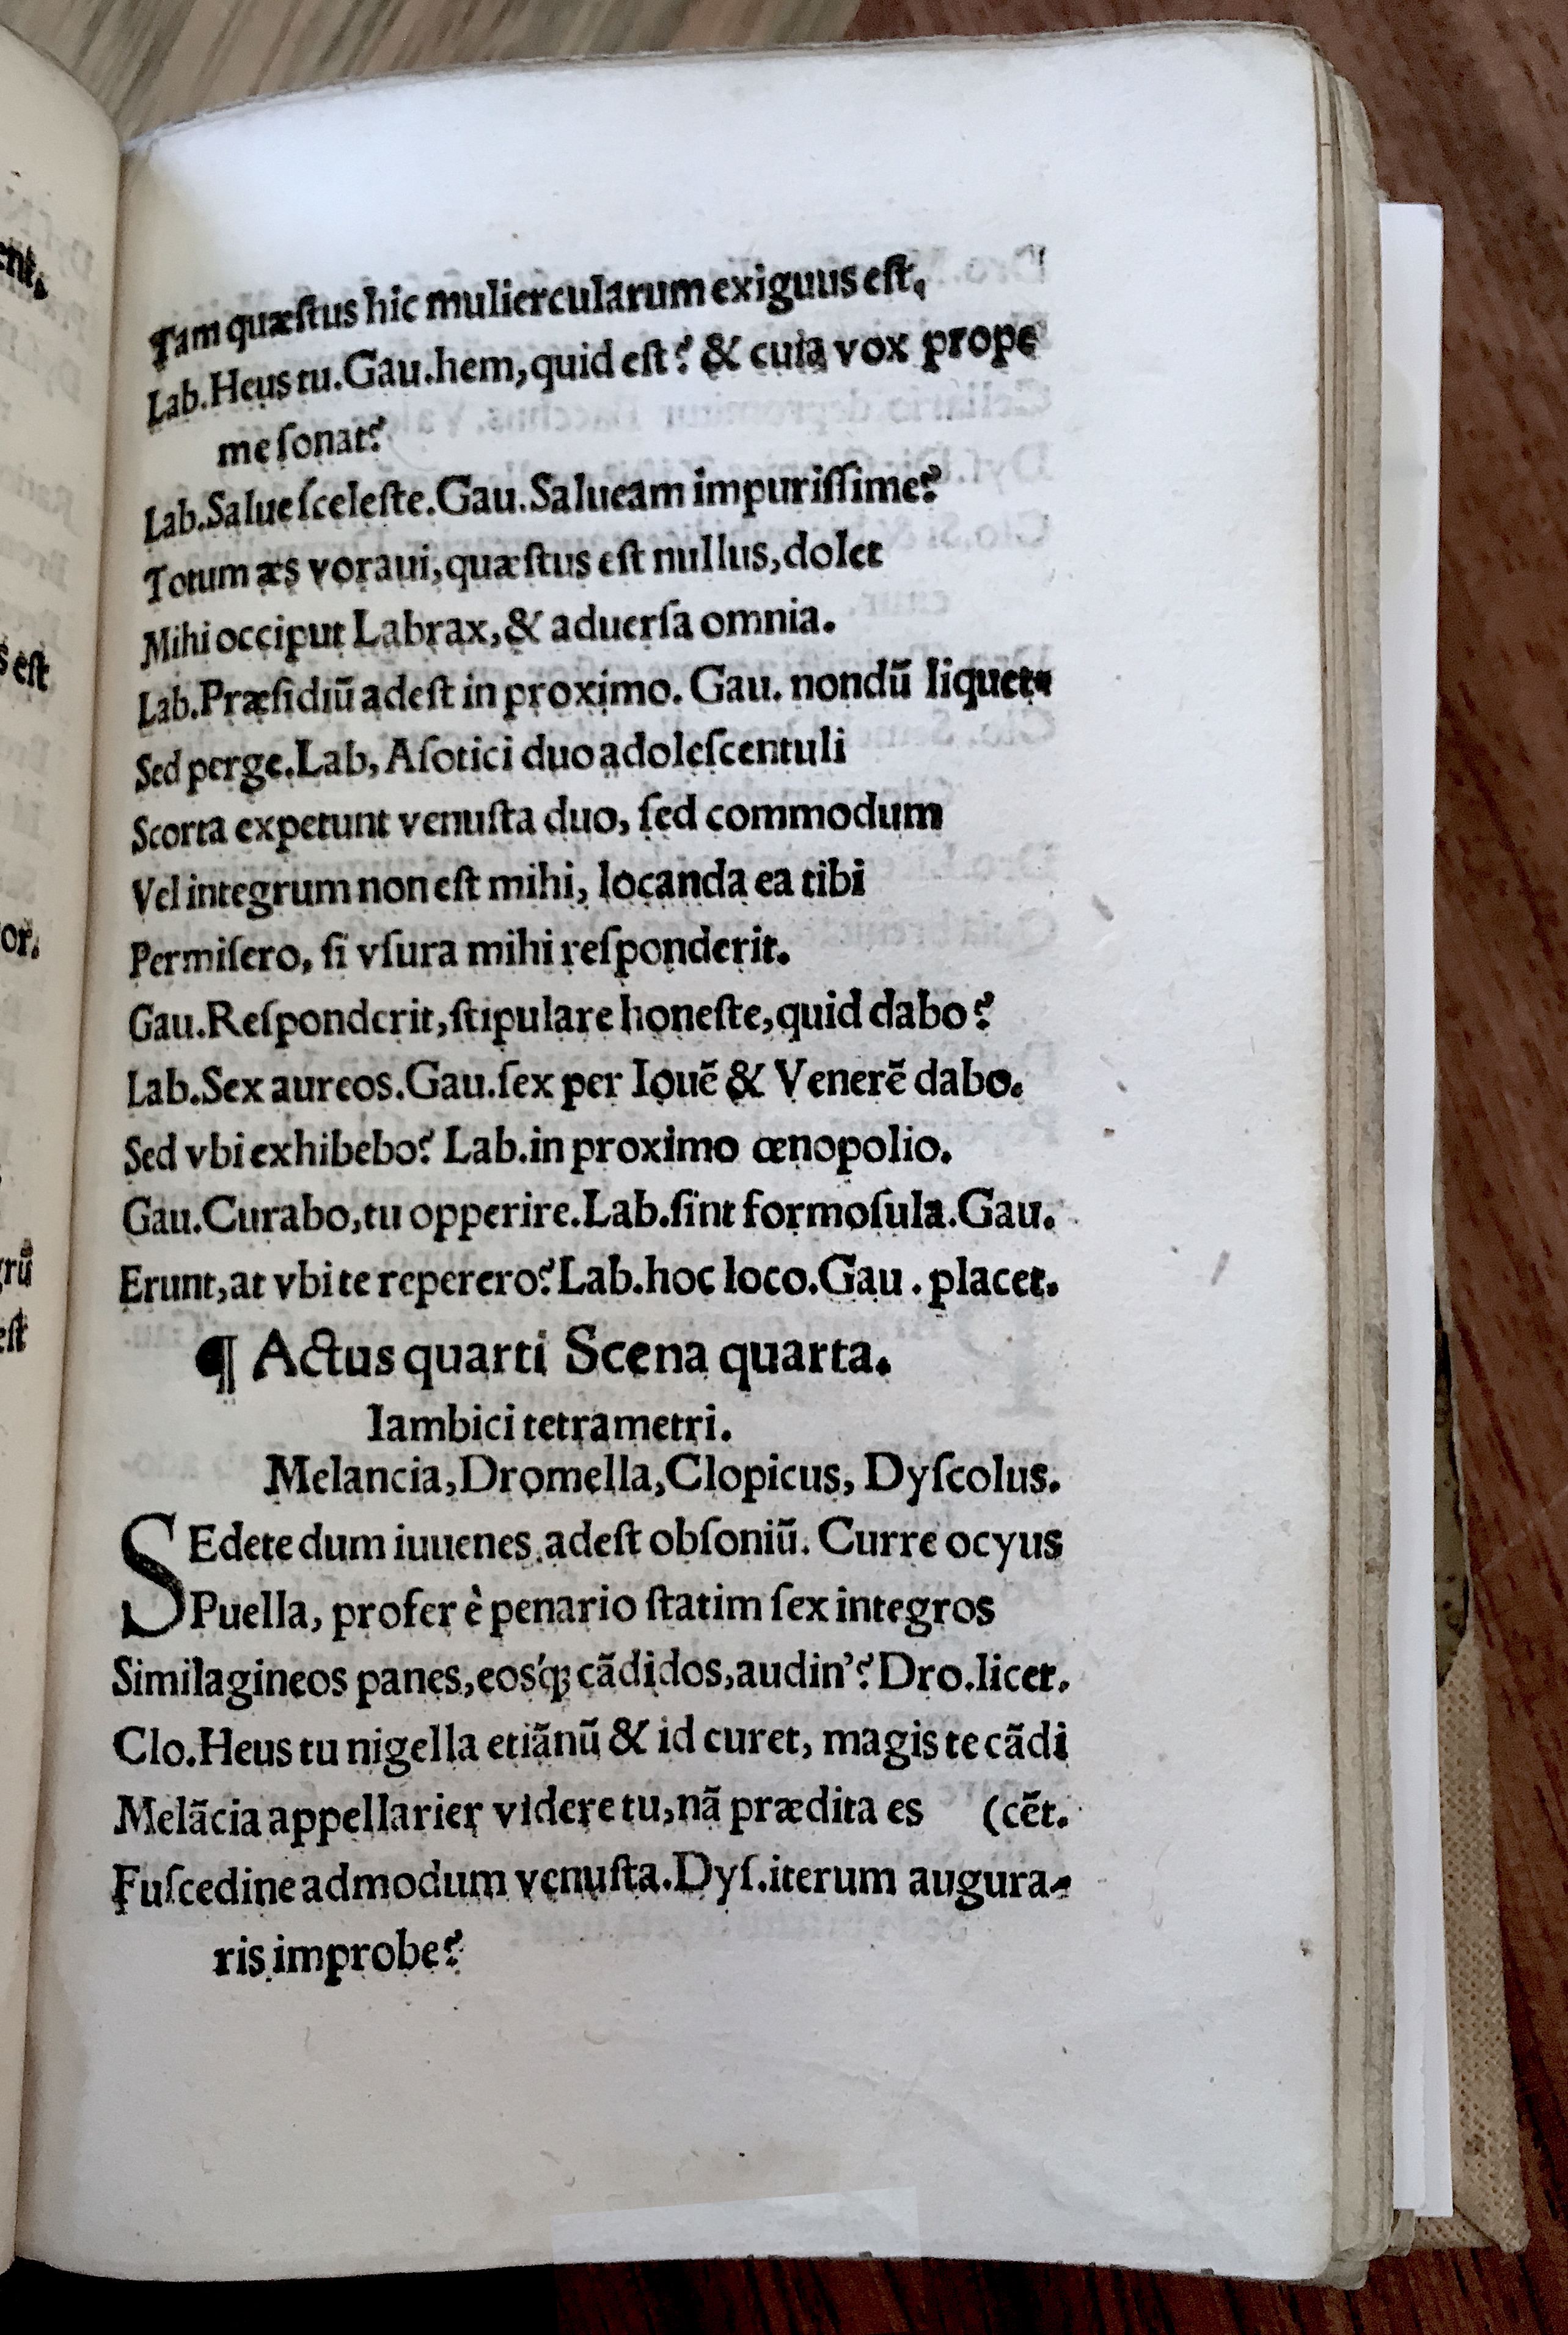 Tam quæſtus hic muliercularum exiguus eſt,
Lab.Heus tu.Gau.hem,quid eſt? & cuia vox prope
me ſonat?
Lab.Salue ſceleſte.Gau.Salueam impuriſſime?
Totum æs voraui,quæſtus eſt nullus,dolet
Mihi occiput Labrax,& aduerſa omnia.
Lab.Præſidiũ adeſt in proximo. Gau. nondũ liquet.
Sed perge.Lab, Aſotici duo adoleſcentuli
Scorta expetunt venuſta duo, ſed commodum
Vel integrum non eſt mihi, locanda ea tibi
Permiſero, ſi vſura mihi reſponderit.
Gau.Reſponderit,ſtipulare honeſte,quid dabo?
Lab.Sex aureos.Gau.ſex per Iouẽ & Venerẽ dabo.
Sed vbi exhibebo? Lab.in proximo œnopolio.
Gau.Curabo,tu opperire.Lab.ſint formoſula.Gau.
Erunt,at vbi te reperero?Lab.hoc loco.Gau . placet.
¶ Actus quarti Scena quarta.
Iambici tetrametri.
Melancia,Dromella,Clopicus, Dyſcolus.
SEdete dum iuuenes.adeſt obſoniũ. Curre ocyus
Puella, profer è penario ſtatim ſex integros
Similagineos panes,eosq́; cãdidos,audin’? Dro.licet.
Clo.Heus tu nigella etiãnũ & id curet, magis te cãdi
Melãcia appellarier videre tu,nã prædita es (cẽt.
Fuſcedine admodum venuſta.Dyſ.iterum augura-
ris improbe?
ent,
s eſt
or.
grũ
eſt